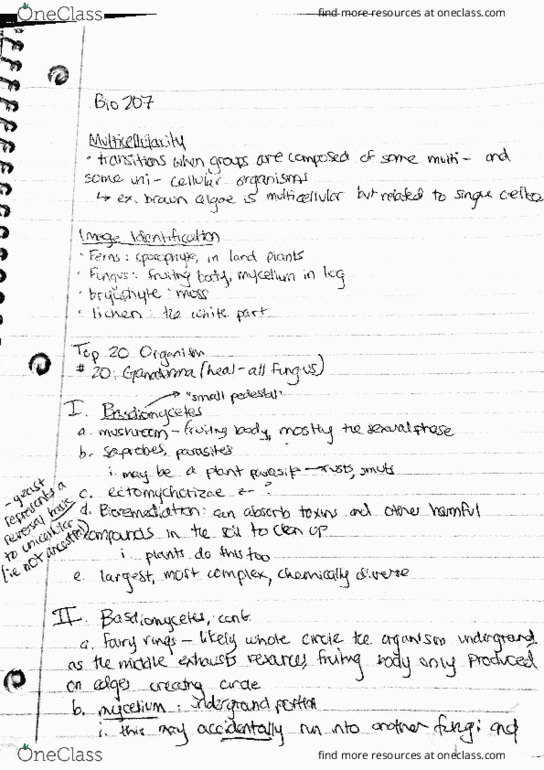 OneClass
find more resources at oneclass.com
Bio 207
Multicellularity
• transitions when groups are composed of some multi- and
some uni-cellular organisms
↳ ex. brown algae is multicellular but related to single celled
Image Identification
• Ferns: sporophyte, in land plants
• Fungus: fruiting body, mycelium in log
• bryophyte: moss
• lichen: the white part
Top 20 Organism
#20: Ganoderma (heal-all fungus)
"small pedestal"
I. Basdiomycetes
a. mushroom - fruiting body, mostly the sexual phase
b. saprobes, parasites
i. may be a plant parasite - rusts, smuts
c. ectomychorizae ← ?
- yeast
represents a
reversal back
to unicellular
(ie not ancestral)
d. Bioremediation: can absorb toxins and other harmful
compounds in the soil to clean up
i. plants do this too
e. largest, most complex, chemically diverse
II. Basdiomycetes, cont.
a. Fairy rings - likely whole circle the organism underground
as the middle exhausts resources fruiting body only produced
on edges creating circle
b. mycelium: underground portion
i. this may accidentally run into another fungi and
OneClass
find more resources at oneclass.com